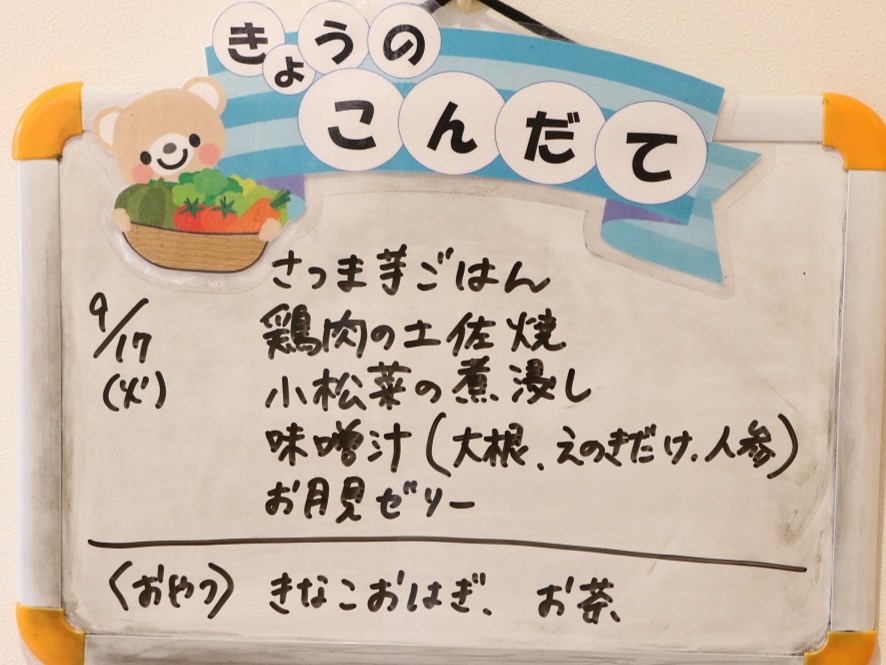 きょうの
こんだて
さつま芋ごはん
9/17
鶏肉の土佐焼
(火)
小松菜の煮浸し
味噌汁(大根、えのきだけ、人参)
お月見ゼリー
〈おやつ〉 きなこおはぎ、お茶、